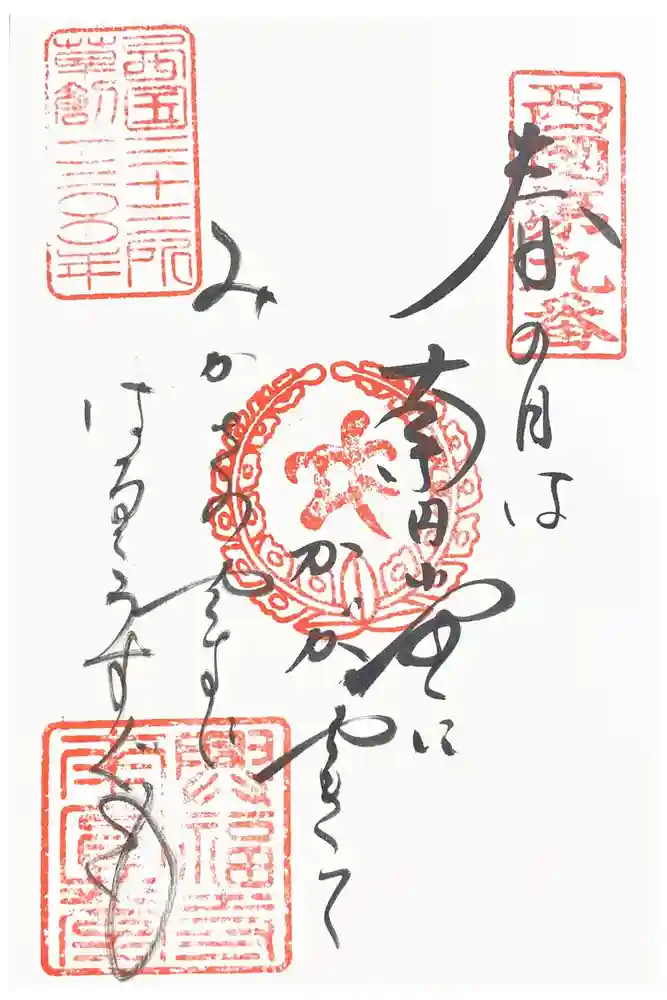 西國第九番
春の月は
南円堂に
かゞやきて
みかさのやまに
はるゝうすぐも
西国三十三所
草創一三〇〇年
興福寺
南圓堂